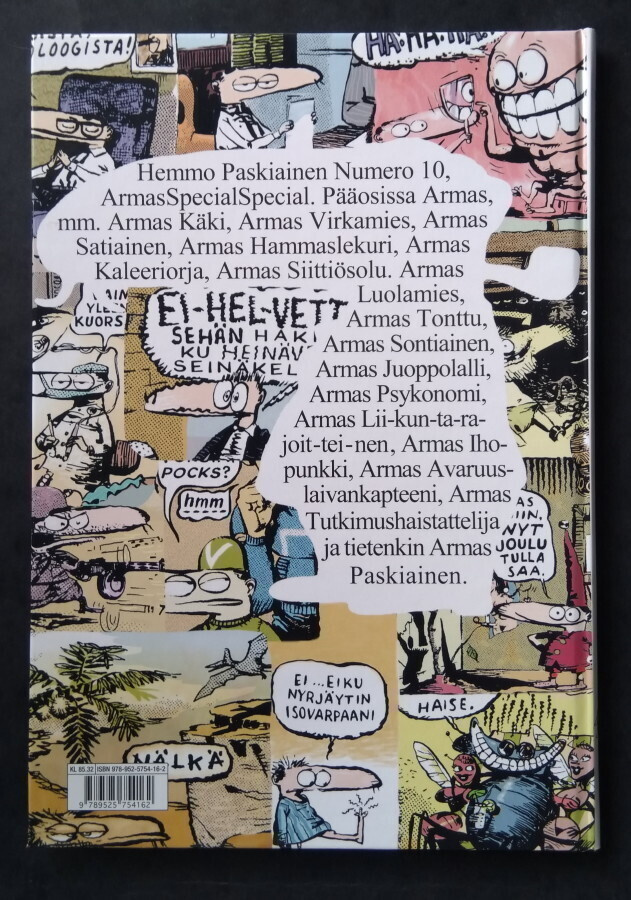 LOOGISTA!
HA-HA-HA!
Hemmo Paskiainen Numero 10,
ArmasSpecialSpecial. Pääosissa Armas,
mm. Armas Käki, Armas Virkamies, Armas
Satiainen, Armas Hammaslekuri, Armas
Kaleeriorja, Armas Siittiösolu. Armas
Luolamies,
Armas Tonttu,
Armas Sontiainen,
Armas Juoppolalli,
Armas Psykonomi,
Armas Lii-kun-ta-ra-
joit-tei-nen, Armas Iho-
punkki, Armas Avaruus-
laivankapteeni, Armas
Tutkimushaistattelija
ja tietenkin Armas
Paskiainen.
KUORS
EI-HEL-VETT
SEHÄN HAK
KU HEINÄV
SEINÄKEL
POCKS?
hmm
NYT
JOULU
TULLA
SAA.
EI...EIKU
NYRJÄYTIN
ISOVARPAANI
HAISE.
NÄLKÄ
KL 85.32 ISBN 978-952-5754-16-2
9 789525 754162